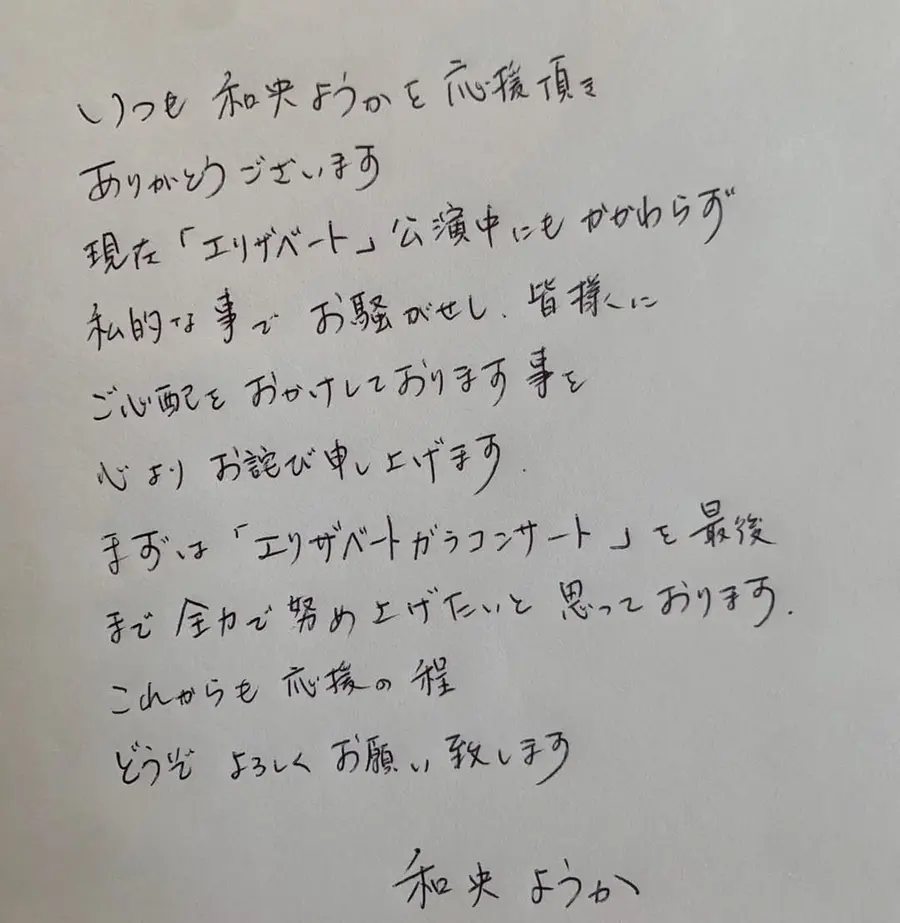 いつも 和央ようかを 応援頂き
ありがとうございます
現在「エリザベート」公演中にも かかわらず
私的な事で お騒がせし、皆様々に
ご心配を おかけしております事を
心より お詫び申し上げます.
まずは「エリザベートガラコンサート」を最後
まで 全力で努め上げたいと 思っております.
これからも 応援の程
どうぞ よろしく お願い致します
和央 ようか